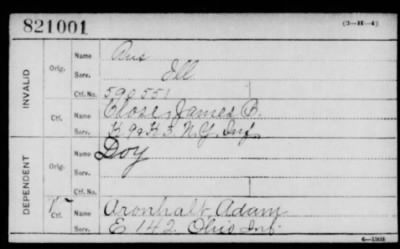 821001
(3—H—4)
INVALID
Orig.
Name Aus
Serv. Ill
Ctf. No. 590551
Ctf.
Name Close, James B.
Serv. K 9 & K 3. N.Y. Inf.
DEPENDENT
Orig.
Name Doy
Serv.
Ctf. No.
Ctf.
Name Aronhalt, Adam
Serv. E 142. Ohio Inf.